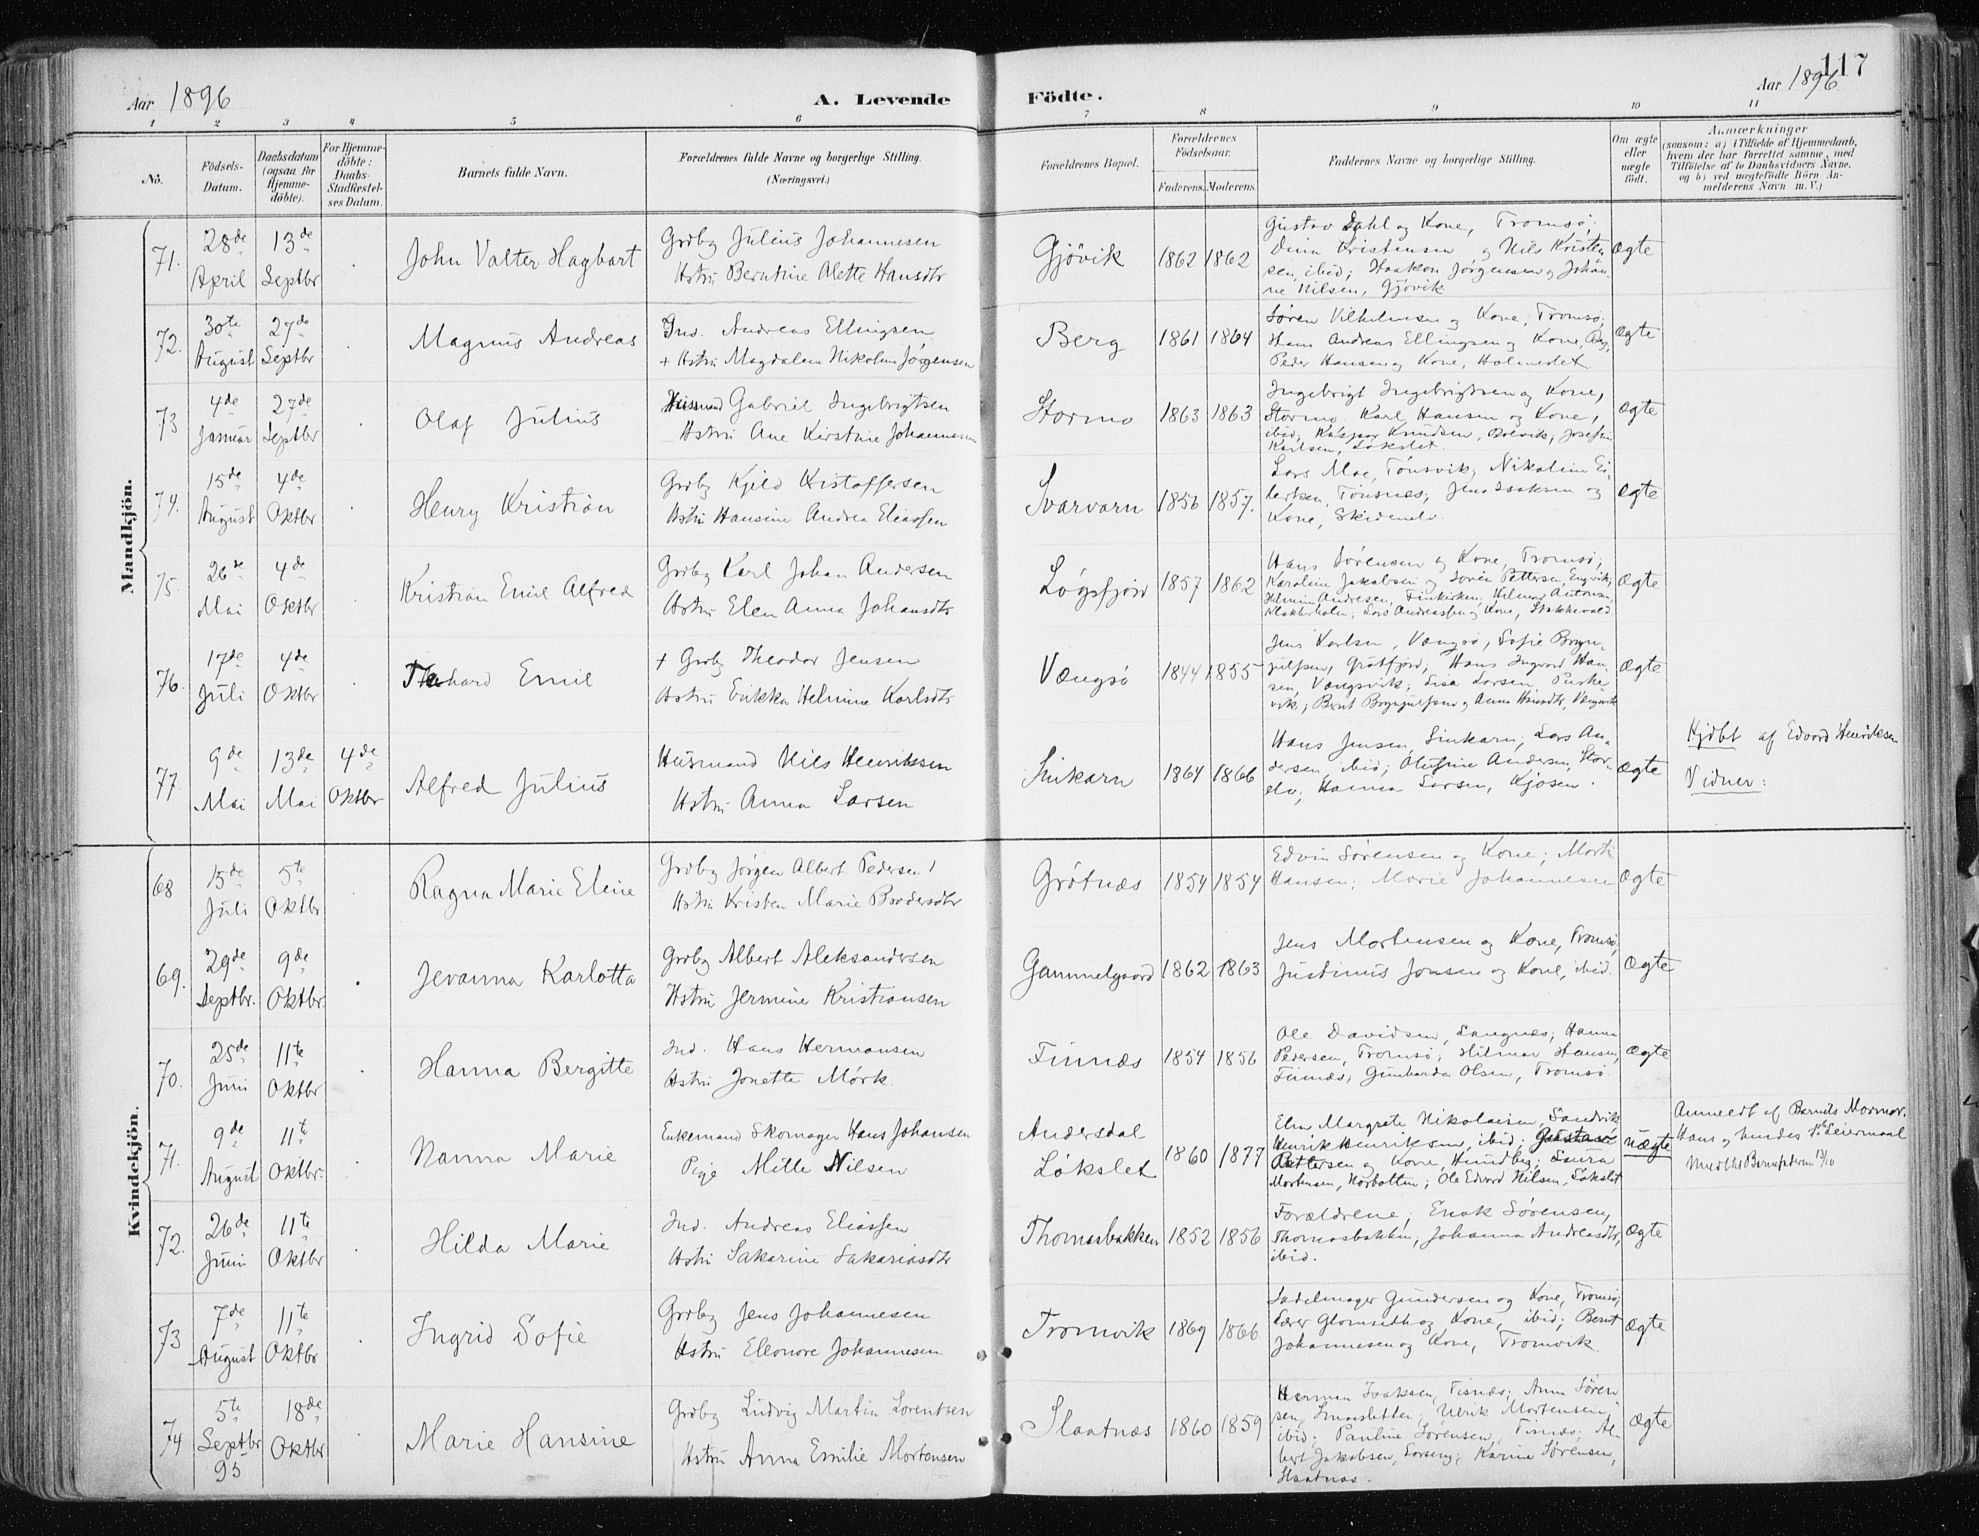 Aar 1896
A. Levende
Födte.
Aar 1896
117
1 2 3 4 5 6 7 8 9 10 11
No.
Födsels-
Datum.
Daabsdatum
(ogsaa for
Hjemme-
döbte).
For Hjemme-
döbte:
Daabs-
Stadfæstel-
ses Datum.
Barnets fulde Navn.
Forældrenes fulde Navne og borgerlige Stilling.
(Næringsvei.)
Forældrenes Bopæl.
Forældrenes
Födselsaar.
Faderens. Moderens.
Faddernes Navne og borgerlige Stilling.
Om ægte
eller
uægte
födt.
Anmærkninger
(saasom: a) i Tilfælde af Hjemmedaab,
hvem der har forrettet samme, med
Tilföielse af to Daabsvidners Navne.
og b) ved uægtefödte Börn An-
melderens Navn m. V.)
Mandkjön.
71.
28de
April
13de
Septbr
John Valter Hagbart
Grdbg Julius Johannesen
Hstru Berntine Alette Hansdtr
Gjøvik
1862 1862
Gustav Dahl og Kone, Tromsø;
Dina Kristensen og Nils Kristen
sen, ibid; Haakon Jørgensen og Johan
ne Nilsen, Gjøvik
Ægte
72.
30te
August
27de
Septbr
Magnus Andreas
Ind. Andreas Ellingsen
+ Hstru Magdalena Nikoline Jørgensen
Berg
1861 1864
Søren Vilhelmsen og Kone, Tromsø;
Hans Andreas Ellingsen og Kone,
Peder Hansen og Kone, Holmeslet
Ægte
73
4de
Januar
27de
Septbr
Olaf Julius
Husmand Gabriel Ingebrigtsen
Hstru Ane Kirstine Johannesen
Stormo
1863 1863
Ingebrigt Ingebrigtsen og Kone,
Stormo, Karl Hansen og Kone,
ibid; Kaspar Knudsen, Josefine
Karlsen, Løkslet.
Ægte
74.
15de
August
4de
Oktbr
Henry Kristian
Grdbg Kjeld Kristoffersen
Hstru Hansine Andrea Eliassen
Svarvarn
1856 1857.
Lars Moe, Tønsvik; Nikoline Ei-
lertsen, Tønsnes; Jens Isaksen og
Kone, Skidenelv.
Ægte
75.
26de
Mai
4de
Oktbr
Kristian Emil Alfred
Grdbg Karl Johan Andersen
Hstru Elen Anna Johansdtr
Løgsfjord
1857 1862
Hans Sørensen og Kone, Tromsø;
Karoline Jakobsen og Søren Pettersen, Engvik;
Andresen, Finkirken; Hilmar Antonsen,
Lars Andreassen og Kone, Stakkevold
Ægte
76.
17de
Juli
4de
Oktbr
Emil
+ Grdbg Theodor Jensen
Hstru Erikka Helmine Karlsdtr
Vængsø
1844 1855
Jens Karlsen, Vængsø; Sofie Bryn-
julfsen, Grøtfjord; Hans Ingvard Han-
sen, Vængsvik; Lisa Larsen,
vik; Bernt Brynjulfsen og Anna Hansdtr, Vængsvik
Ægte
77.
9de
Mai
13de
Mai
4de
Oktbr
Alfred Julius
Husmand Nils Henriksen
Hstru Anna Larsen
Sinkarn
1864 1866
Hans Jensen, Sinkarn; Lars An-
dersen, ibid; Olufine Andersen, Stor-
elv; Hanna Larsen, Kjosen.
Ægte
Hjdbt af Edvard Henriksen
Vidner:
Kvindekjön.
68
15de
Juli
5te
Oktbr
Ragna Marie Eline
Grdbg Jørgen Albert Pedersen
Hstru Kristen Marie Brodersdtr
Grøtnæs
1854 1854
Edvin Sørensen og Kone;
Hansen; Marie Johannesen
Ægte
69.
29de
Septbr.
9de
Oktbr.
Jevanna Karlotta
Grdbg Albert Aleksandersen
Hstru Jermine Kristiansen
Gammelgaard
1862 1863
Jens Mortensen og Kone, Tromsø,
Justinus Jonsen og Kone, ibid.
Ægte
70.
25de
Juni
11te
Oktbr
Hanna Bergitte
Ind. Hans Hermansen
Hstru Jonette Mørk.
Finnæs
1854 1856
Ole Davidsen, Langnes; Hanna
Pedersen, Tromsø; Hilmar Hansen,
Finnæs; Gunharda Olsen, Tromsø.
Ægte
71.
9de
August
11te
Oktbr.
Nanna Marie
Enkemand Skomager Hans Johansen
Pige Mitte Nilsen
Andersdal
Løkslet
1860 1877
Elen Margrete Nikolaisen, Sandvik
Henrik Henriksen, ibid; Gustav
Pettersen og Kone, Hundbg; Laura
Mortensen, Norbotten; Ole Edvard Nilsen, Løkslet
uægte
Anmeldt af Barnets Mormor.
Hans og hendes 1ste Leiermaal
72.
26de
Juni
11te
Oktbr
Hilda Marie
Ind. Andreas Eliassen
Hstru Sakarine Sakariasdtr
Thomasbakken
1852 1856
Forældrene; Enok Sørensen,
Thomasbakken, Johanna Andreasdtr,
ibid.
Ægte
73
7de
August
11te
Oktbr
Ingrid Sofie
Grdbg Jens Johannesen
Hstru Eleonore Johannesen
Tromvik
1869 1866
Sadelmager Gundersen og Kone, Tromsø,
Lærer Glomseth og Kone, ibid; Bernt
Johannesen og Kone, Tromvik.
Ægte
74
5te
Septbr
95
18de
Oktbr
Marie Hansine
Grdbg Ludvig Martin Lorentsen
Hstru Anna Emilie Mortensen
Slaatnæs
1860 1859
Herman Isaksen, Tisnæs; Anna Søren
sen, Ulrik Mortensen,
ibid; Pauline Sørensen, Tisnæs; Al-
bert Jakobsen, Karine Sørensen,
Slaatnæs.
Ægte